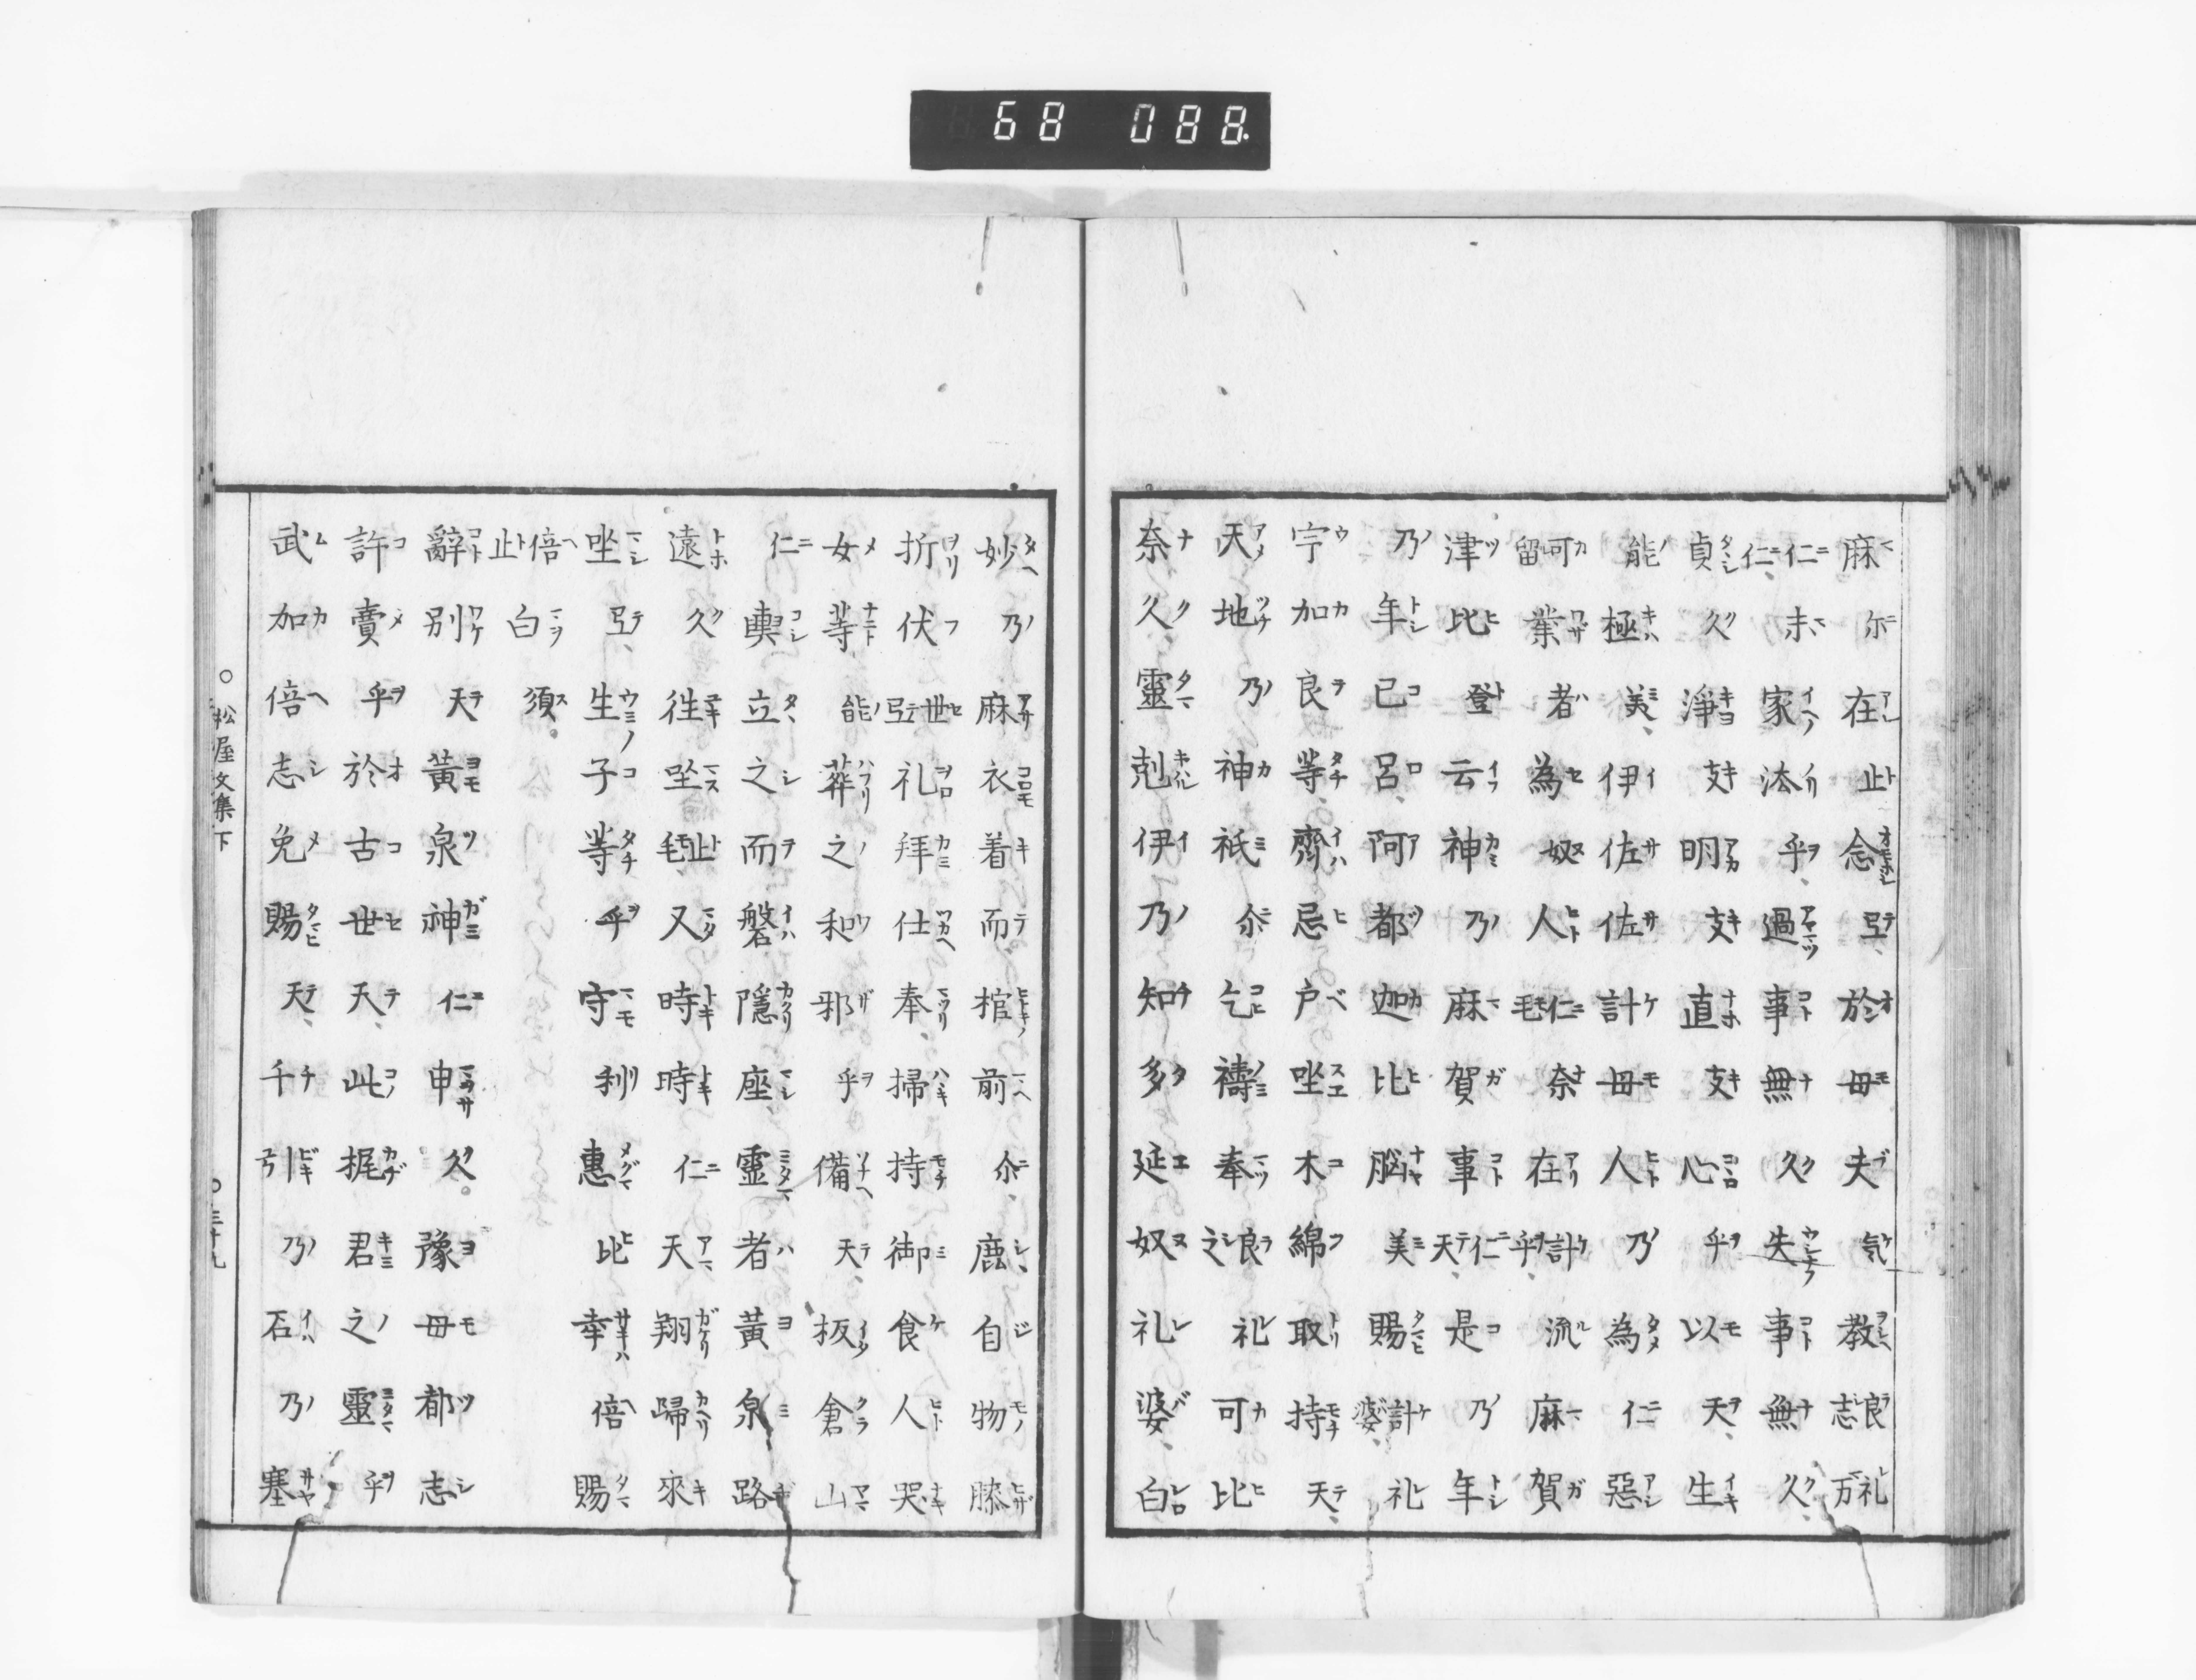 68 088.
麻尓在止念弖、於毋夫気教良志礼万
仁仁、未家汰乎、過事無久失事無久、
貞久淨支明支直支心乎以天、生
能極美、伊佐佐計毋人乃為仁惡
可留業者為奴人仁毛奈在計乎、流麻賀
津比登云神乃麻賀事仁天、是乃年
乃年已呂、阿都迦比脳美賜計婆、礼
宇加良等齊忌戸坐木綿取持天、
天地乃神祇尒乞禱奉良之礼可比
奈久靈剋伊乃知多延奴礼婆、白
妙乃麻衣着而棺前尒、鹿自物膝
折伏世弖礼拜仕奉、掃持御食人哭
女等能葬之和邪乎備天、板倉山
仁輿立之而磐隱座、靈者黃泉路
遠久徃坐止毛、又時時仁天翔歸來
坐弖、生子等乎守利惠比幸倍賜
倍止白須。
辭別天黃泉神仁申久。豫毋都志
許賣乎於古世天、此掍君之靈乎
武加倍志免賜天、千引乃石乃塞
○松屋文集下
○三十九